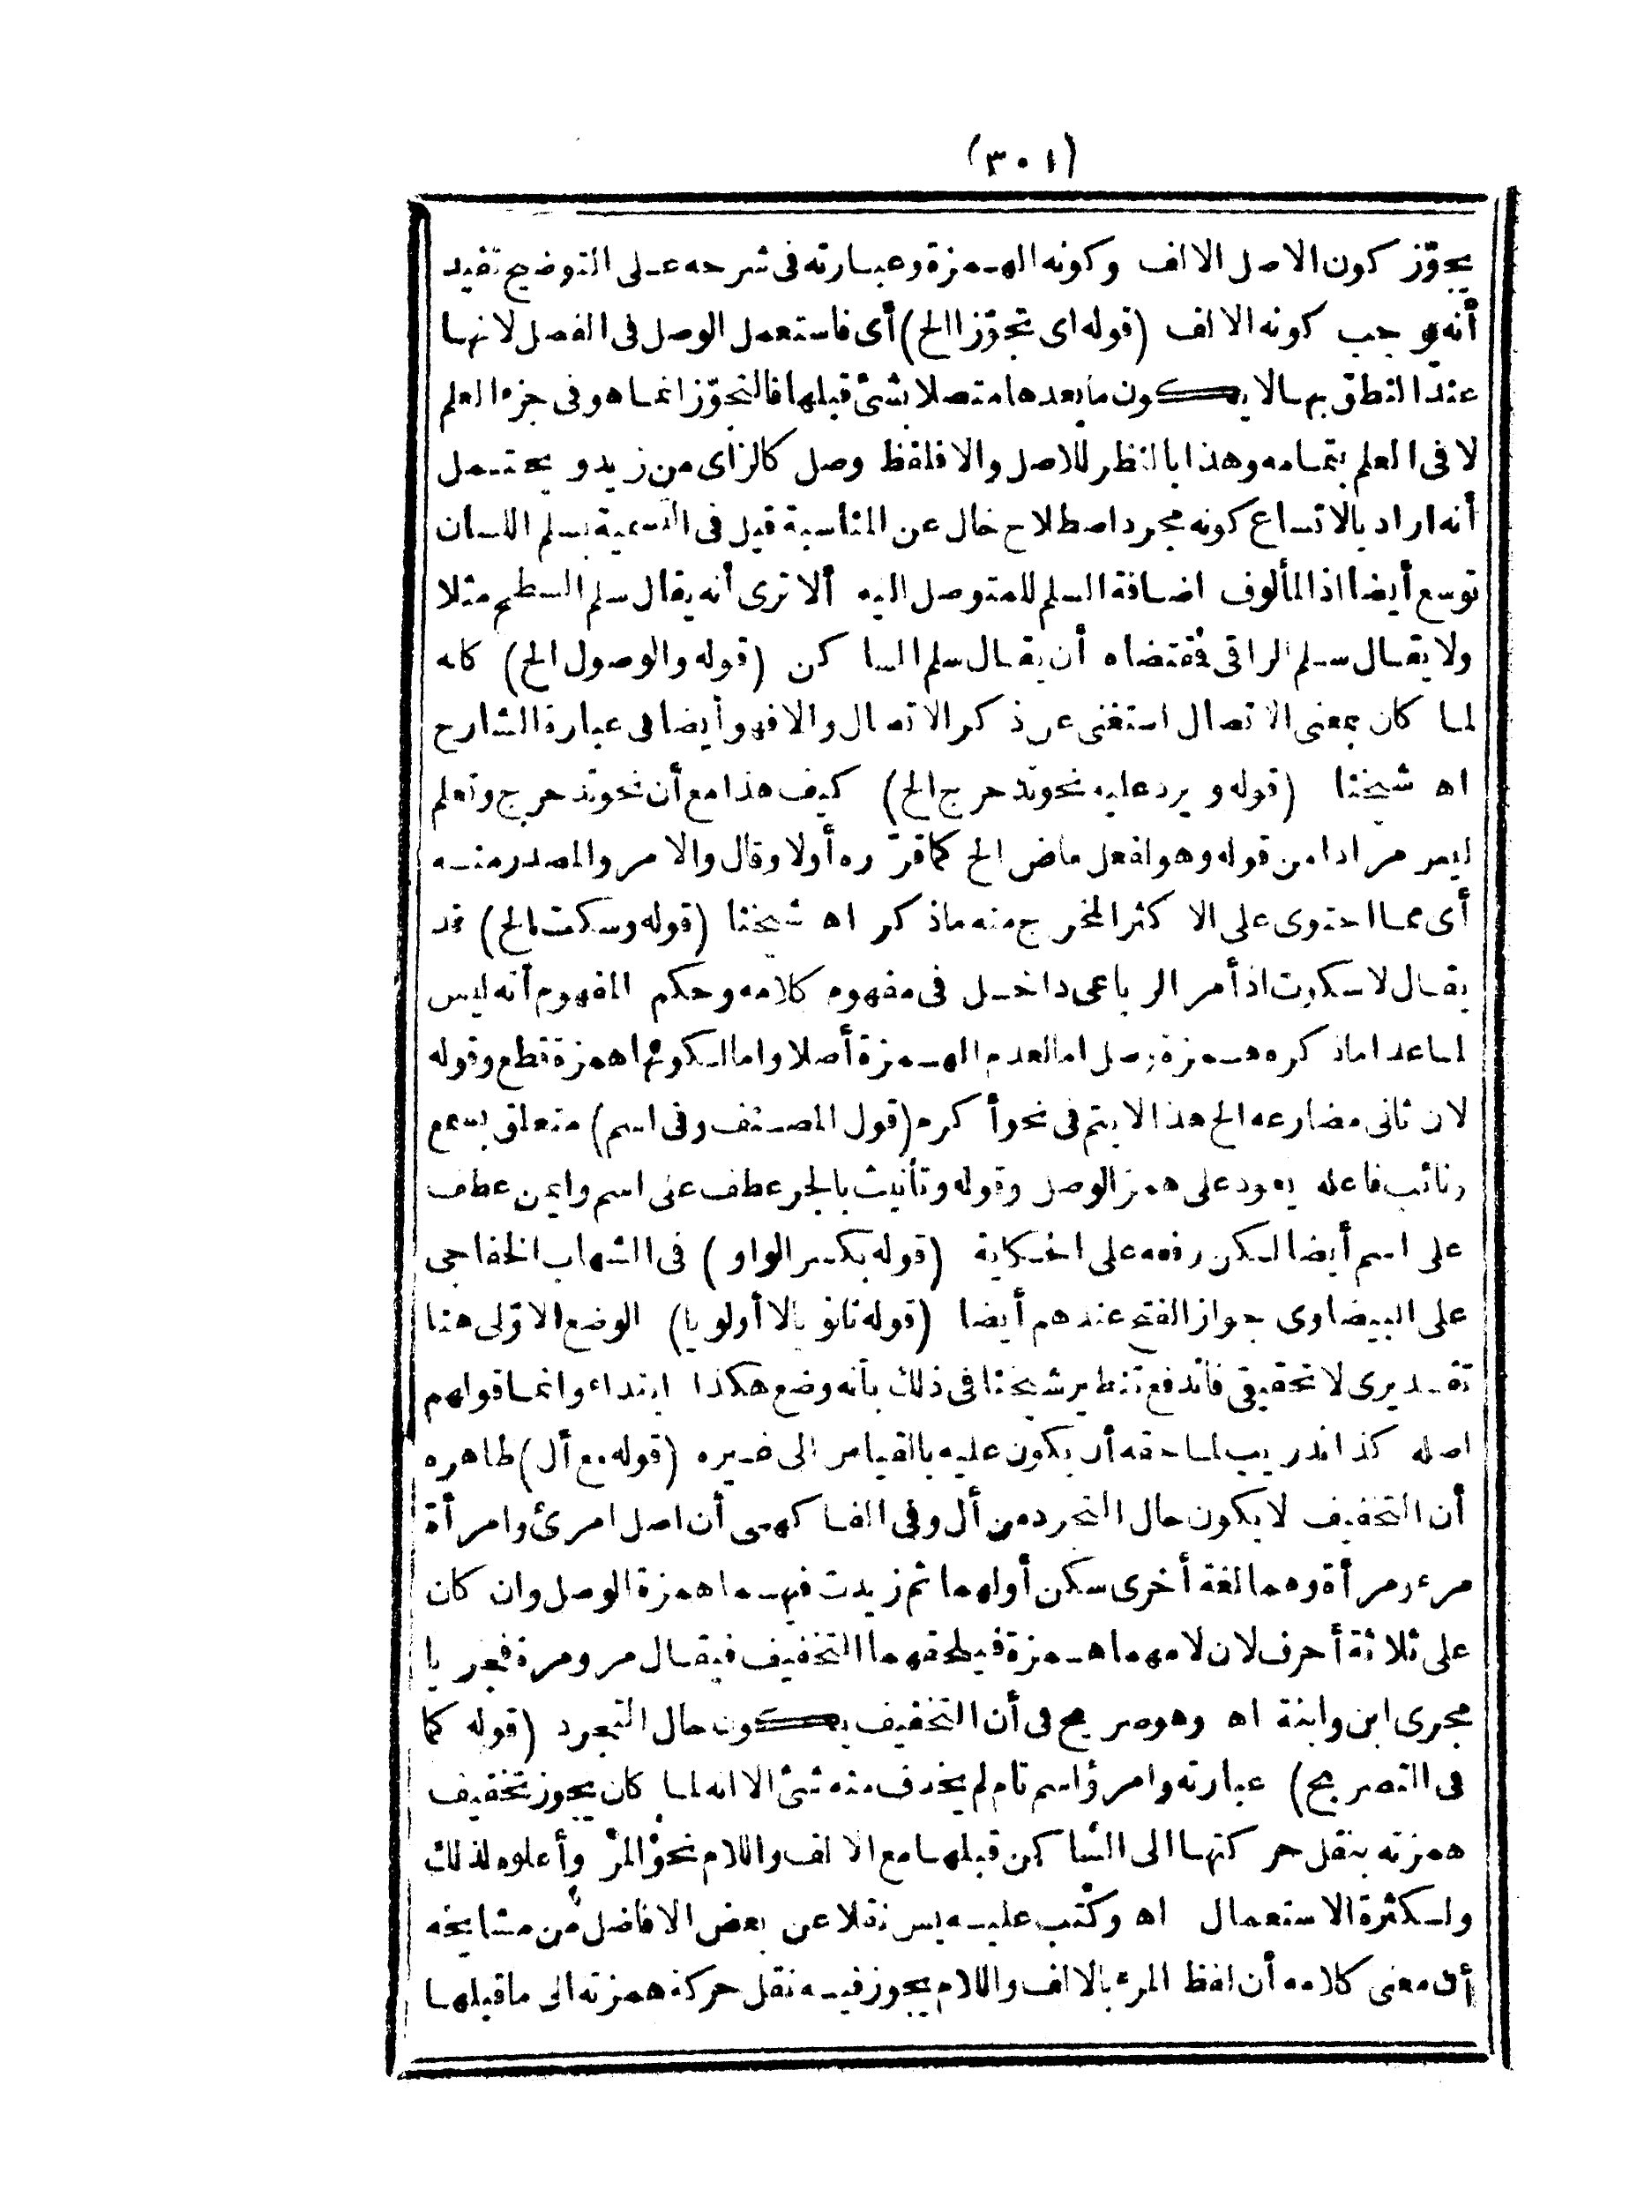 (٣٠١)
يجوّز كون الاصل الالف وكونه الهمزة وعبارته فى شرحه على التوضيح تفيد
أنه يوجب كونه الالف (قوله اى تجوّزا الخ) أى فاستعمل الوصل فى الفصل لانها
عند النطق بها لا يكون ما بعدها متصلا بشئ قبلها فالتجوّز انما هو فى جزء العلم
لا فى العلم بتمامه وهذا بالنظر للاصل والا فلفظ وصل كالزاى من زيد ويحتمل
أنه اراد بالاتساع كونه مجرد اصطلاح خال عن المناسبة قيل فى التسمية بسلم اللسان
توسع أيضا اذ المألوف اضافة السلم للمتوصل اليه ألا ترى أنه يقال سلم السطح مثلا
ولا يقال سلم الراقى فمقتضاه أن يقال سلم الساكن (قوله والوصول الخ) كانه
لما كان بمعنى الاتصال استغنى عن ذكر الاتصال والا فهو أيضا فى عبارة الشارح
اه شيخنا (قوله ويرد عليه نحو تدحرج الخ) كيف هذا مع أن نحو تدحرج وتعلم
ليس مرادا من قوله وهو لفعل ماض الخ كما قرّره أولا وقال والامر والمصدر منه
أى مما احتوى على الاكثر المخرج منه ما ذكر اه شيخنا (قوله وسكت الخ) قد
يقال لا سكوت اذ أمر الرباعى داخل فى مفهوم كلامه وحكم المفهوم أنه ليس
لما عدا ما ذكره همزة وصل اما لعدم الهمزة أصلا واما لكونها همزة قطع وقوله
لان ثانى مضارعه الخ هذا لا يتم فى نحو أكرم (قول المصنف وفى اسم) متعلق بسمع
ونائب فاعله يعود على همز الوصل وقوله وتأنيث بالجر عطف على اسم وايمن عطف
على اسم أيضا لكن رفعه على الحكاية (قوله بكسر الواو) فى الشهاب الخفاجى
على البيضاوى جواز الفتح عندهم أيضا (قوله ثانويا لا أولويا) الوضع الاوّلى هنا
تقديرى لا تحقيقى فاندفع تنظير شيخنا فى ذلك بأنه وضع هكذا ابتداء وانما قولهم
اصله كذا تدريب لما حقه أن يكون عليه بالقياس الى غيره (قوله مع أل) ظاهره
أن التخفيف لا يكون حال التجرد من أل وفى الفاكهى أن اصل امرئ وامرأة
مرء ومرأة وهما لغة أخرى سكن أولهما ثم زيدت فيهما همزة الوصل وان كان
على ثلاثة أحرف لان لامهما همزة فيلحقهما التخفيف فيقال مر ومرة فجريا
مجرى ابن وابنة اه وهو صريح فى أن التخفيف يكون حال التجرد (قوله كما
فى التصريح) عبارته وامرؤ اسم تام لم يحذف منه شئ الا انه لما كان يجوز تخفيف
همزته بنقل حركتها الى الساكن قبلها مع الالف واللام نحو المر وأعلوه لذلك
ولكثرة الاستعمال اه وكتب عليه يس نقلا عن بعض الافاضل من مشايخه
أن معنى كلامه أن لفظ المرء بالالف واللام يجوز فيه نقل حركة همزته الى ما قبلها